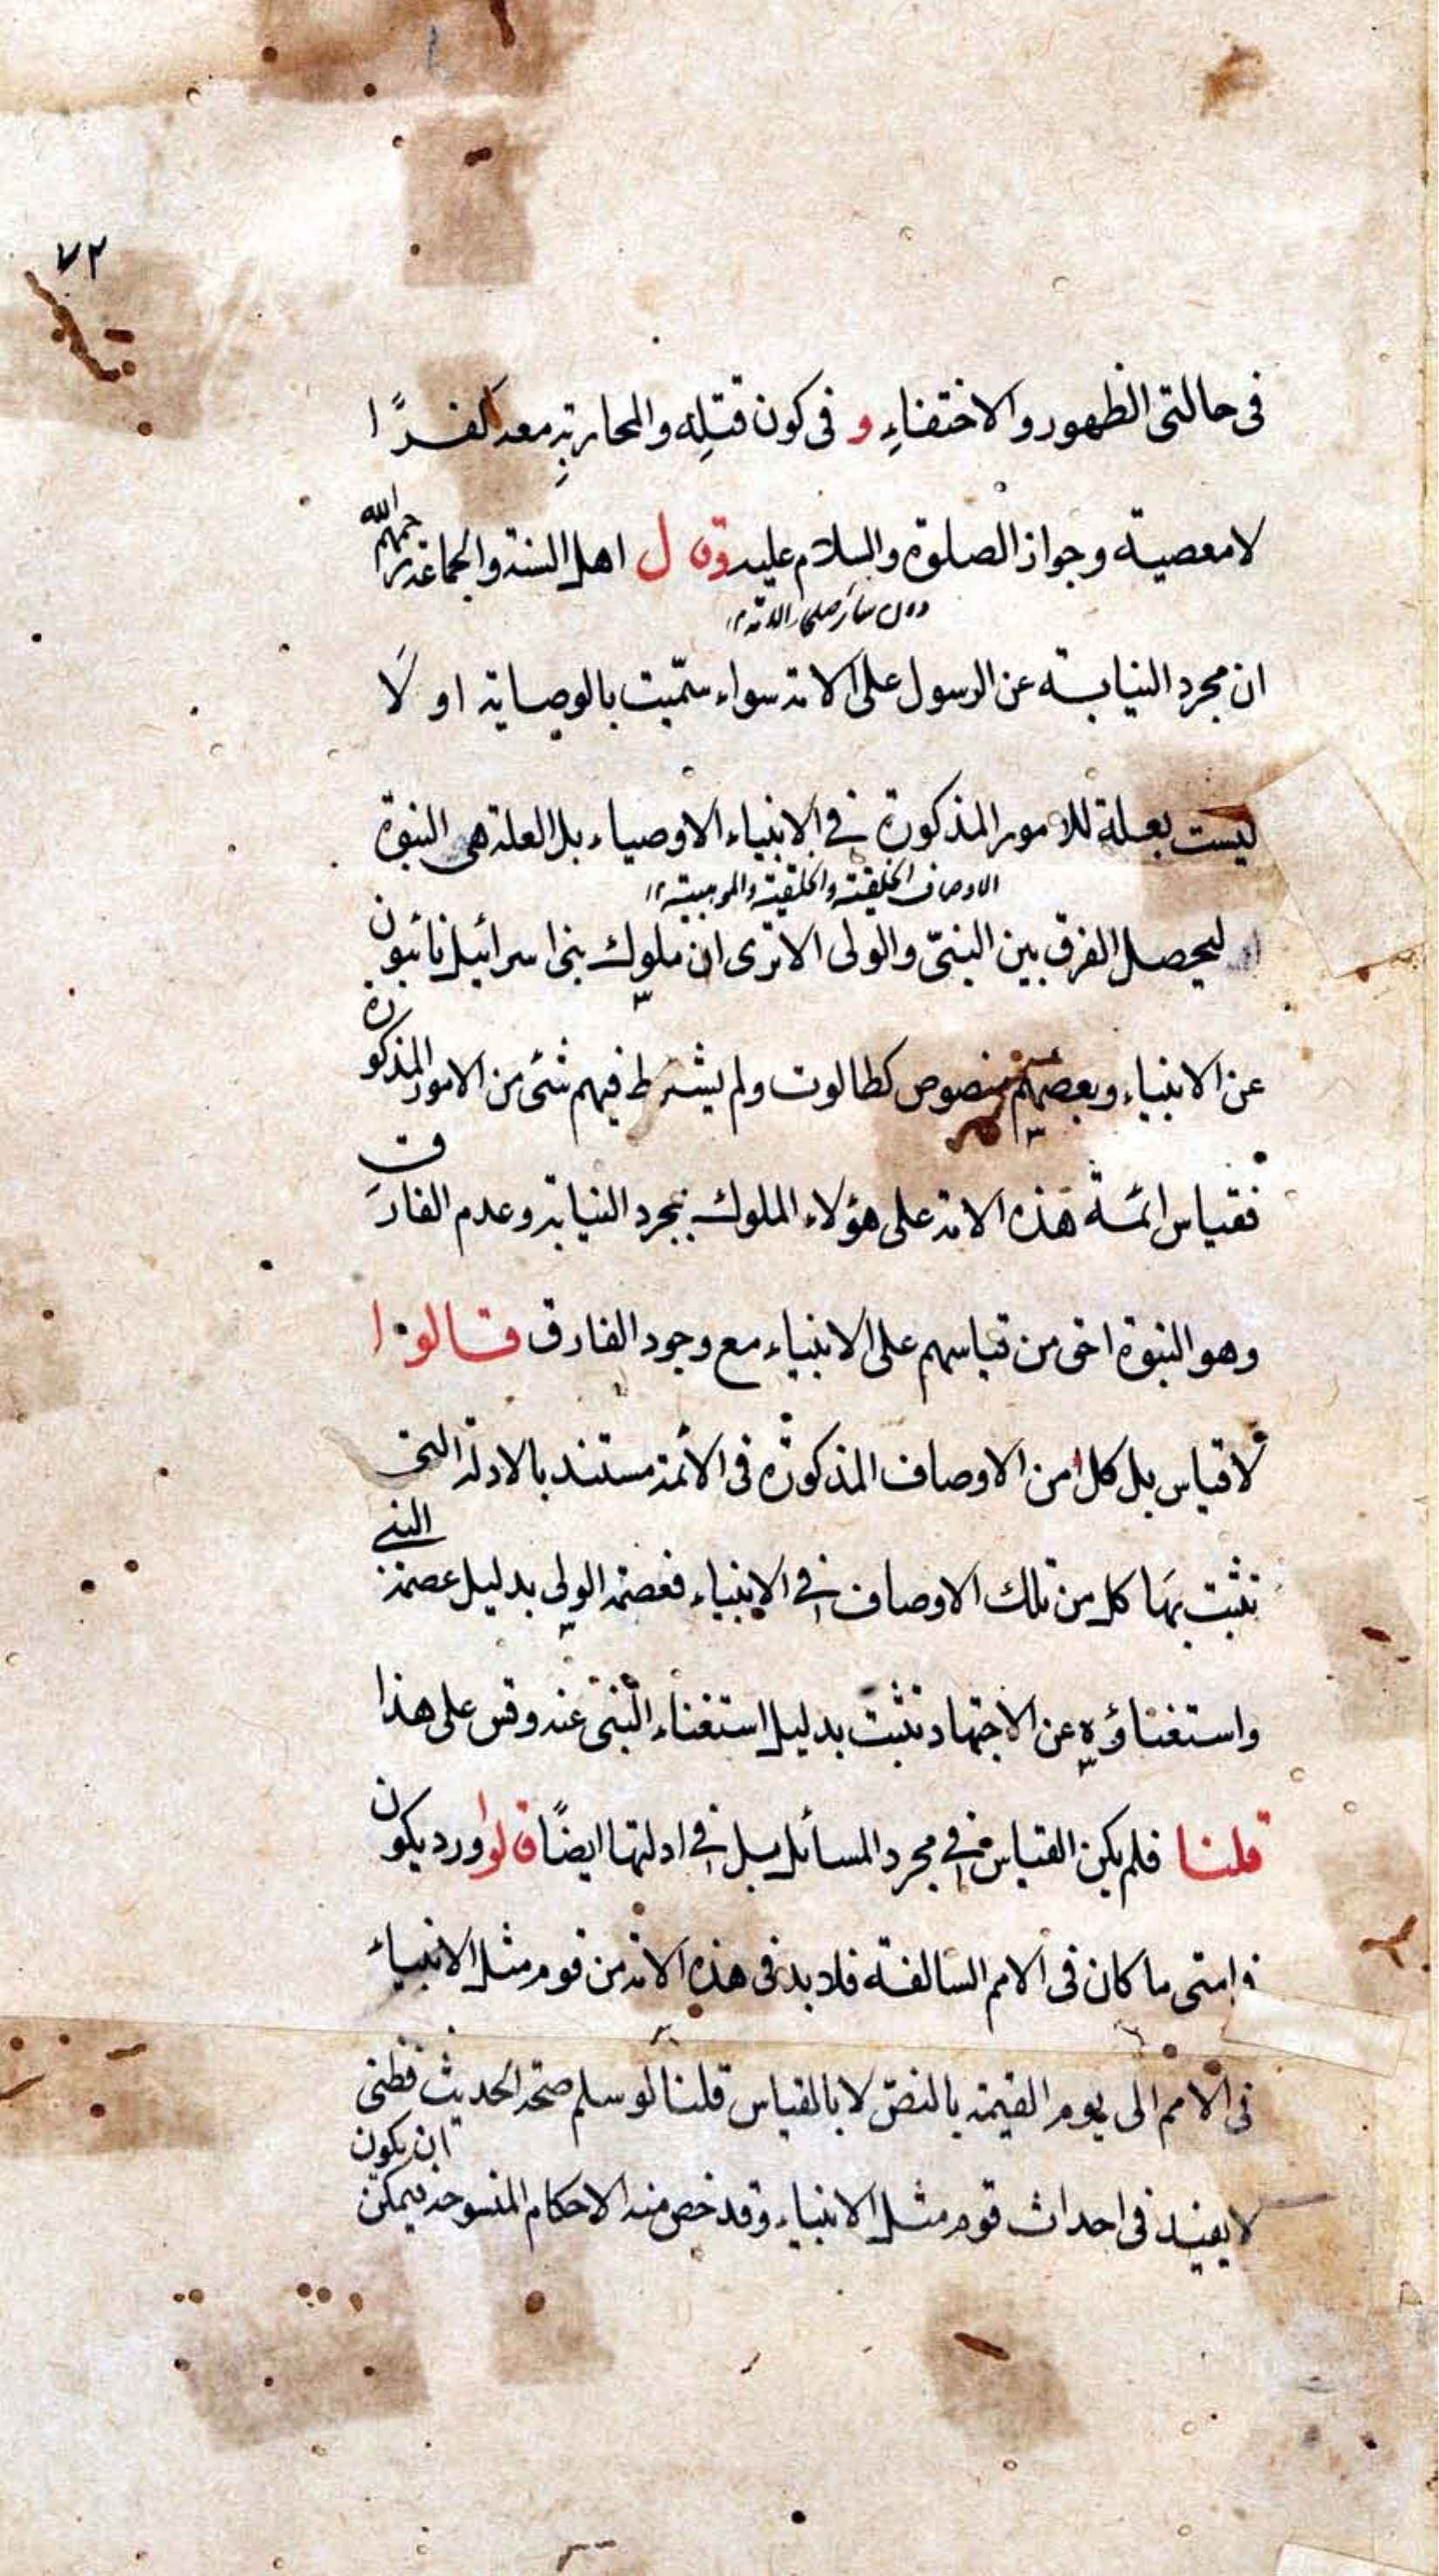 ٧٢
فى حالتى الظهور والاختفاءِ و فى كون قتلِه والمحاربتِه معه كفرًا
لا معصية وجواز الصلوة والسلام عليه وقال اهل السنة والجماعة رحمهم الله
دون سائر صلحاء الامة ١٢
ان مجرد النيابة عن الرسول على الامة سواء سمّيت بالوصاية او لَا
ليست بعلة للامور المذكورة فى الانبياء الاوصياء بل العلة هى النبوة
الاوصاف الخلقية والخلقية والموهبية ١٢
ليحصل الفرق بين النبىّ والولى الا ترى ان ملوك بنى اسرائيل نائبون
عن الانبياء وبعضهم منصوص كطالوت ولم يشترط فيهم شئ من الامور المذكورة
فقياس ائمة هذه الامة على هؤلاء الملوك بمجرد النيابة وعدم الفارق
وهو النبوة احى من قياسهم على الانبياء مع وجود الفارق قالوا
لا قياس بل كل من الاوصاف المذكورة فى الائمة مستند بالادلة التى
تثبت بهَا كل من تلك الاوصاف فى الانبياء فعصمة الولى بدليل عصمة النبى
واستغناؤه عن الاجتهاد تثبت بدليل استغناء النبى عنه وقس على هذا
قلنا فلم يكن القياس فى مجرد المسائل بل فى ادلتها ايضًا قالوا ورد يكون
فى امتى ما كان فى الامم السالفة فلا بد فى هذه الامة من قوم مثل الانبياء
فى الامم الى يوم القيمة بالنصّ لا بالقياس قلنا لو سلم صحة الحديث فظنى
لا يفيد فى احداث قوم مثل الانبياء وقد خص منه الاحكام المنسوخة فيمكن ان يكون